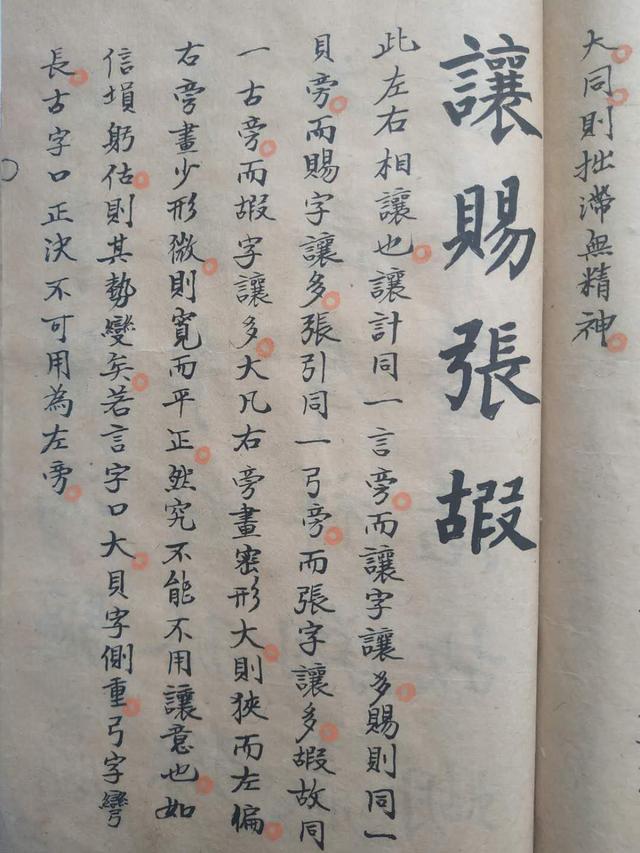 大同則拙滯無精神
讓賜張嘏
此左右相讓也讓計同一言旁而讓字讓多賜則同一
貝旁而賜字讓多張引同一弓旁而張字讓多嘏故同
一古旁而嘏字讓多大凡右旁畫密形大則狹而左偏
右旁畫少形微則寬而平正然究不能不用讓意也如
信塤躬估則其勢變矣若言字口大貝字側重弓字彎
長古字口正決不可用為左旁